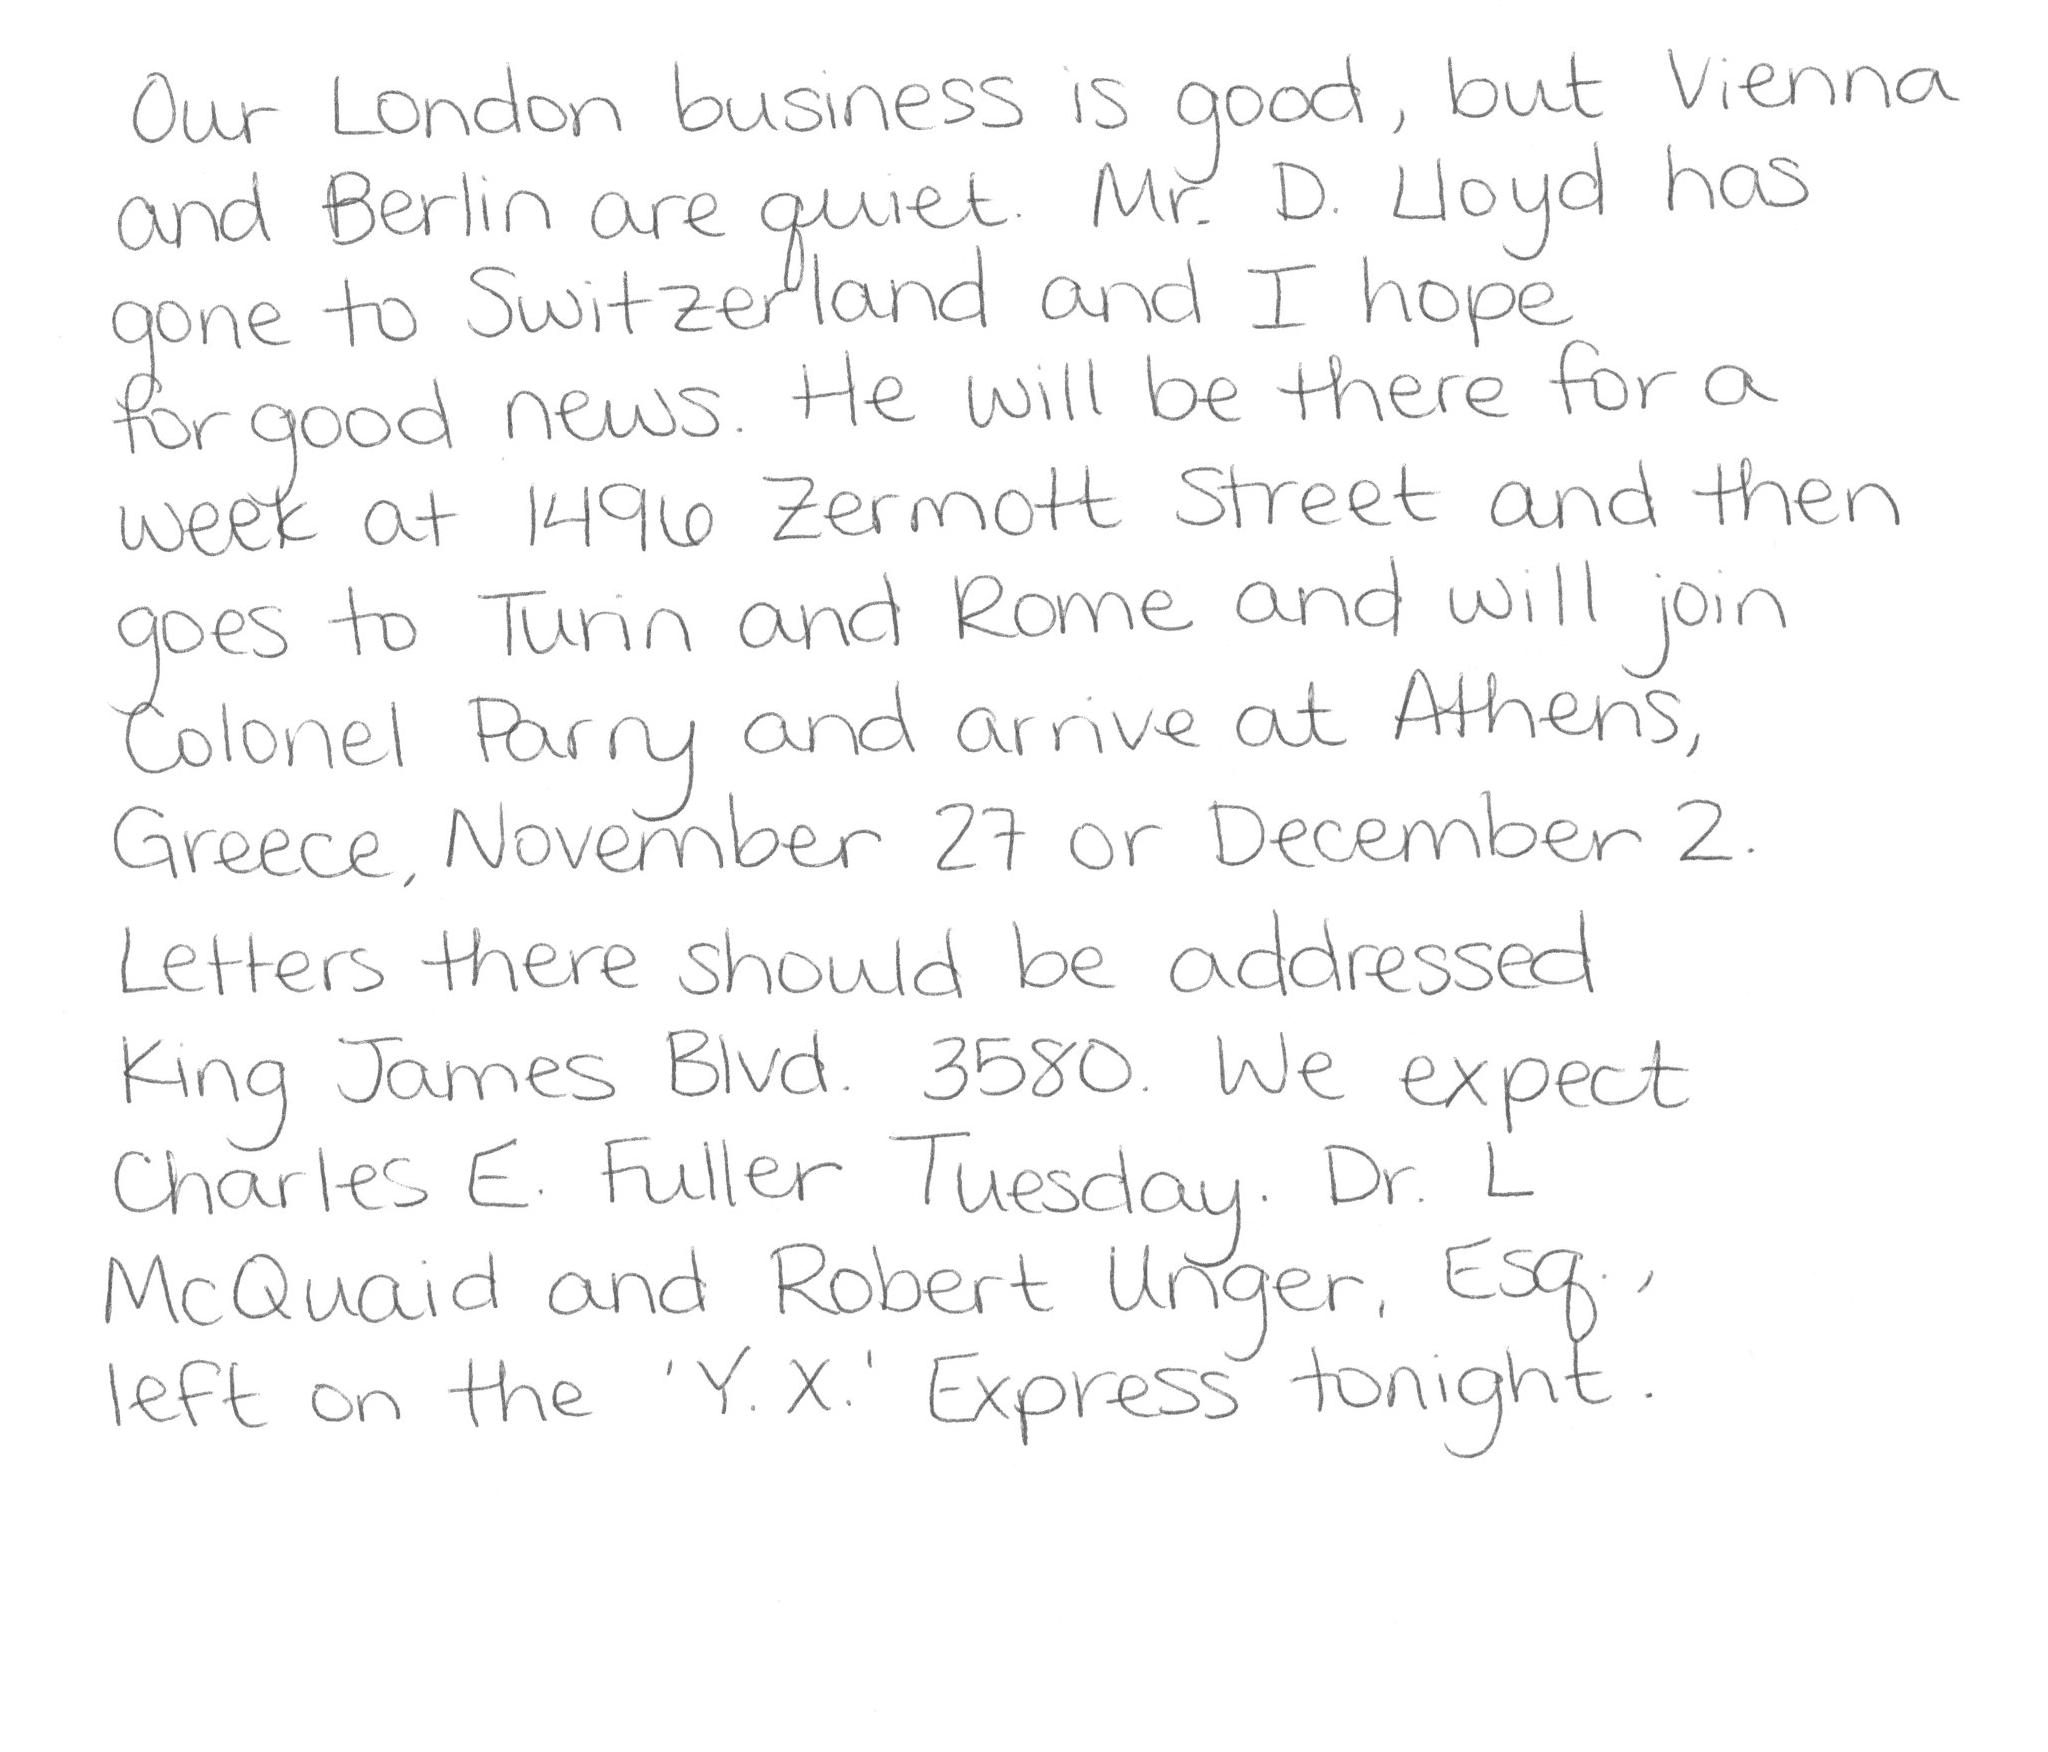 Our London business is good, but Vienna
and Berlin are quiet. Mr. D. Lloyd has
gone to Switzerland and I hope
for good news. He will be there for a
week at 1496 Zermott Street and then
goes to Turin and Rome and will join
Colonel Parry and arrive at Athens,
Greece, November 27 or December 2.
Letters there should be addressed
King James Blvd. 3580. We expect
Charles E. Fuller Tuesday. Dr. L
McQuaid and Robert Unger, Esq.,
left on the 'Y. X.' Express tonight.